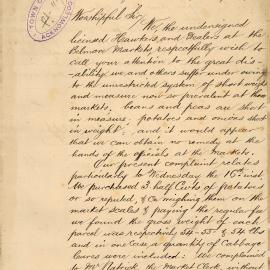 TOWN C
ACKNOWLED
Worshipful Sir
We, the undersigned
licensed Hawkers and Dealers at the
Belmore Markets, respectfully wish to
call your attention to the great dis-
-ability we and others suffer under owing
to the unrestricted system of short weight
and measure now so prevalent at those
markets, beans and peas are short
in measure, potatoes and onions short
in weight; and it would appear
that we can obtain no remedy at the
hands of the officials at the Market.
Our present complaint relates
particularly to Wednesday the 16th inst.
We purchased 3 half Cwts of potatoes
or so reputed, & on weighing them on the
market scales & paying the regular fee
we found the gross weight of each
parcel was respectively 54-55 & 54 lbs
and in one case a quantity of Cabbage
leaves were included: We complained
to Mr the Market Clerk, without